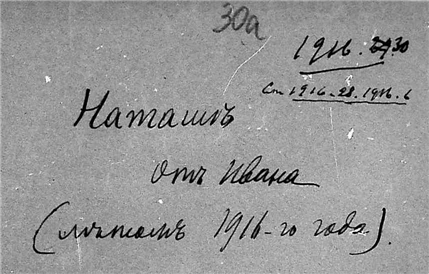 30а
1916. 30
Ст 1916-28. 1916. 6
Наташѣ
отъ Ивана
(лѣтомъ 1916-го года.).